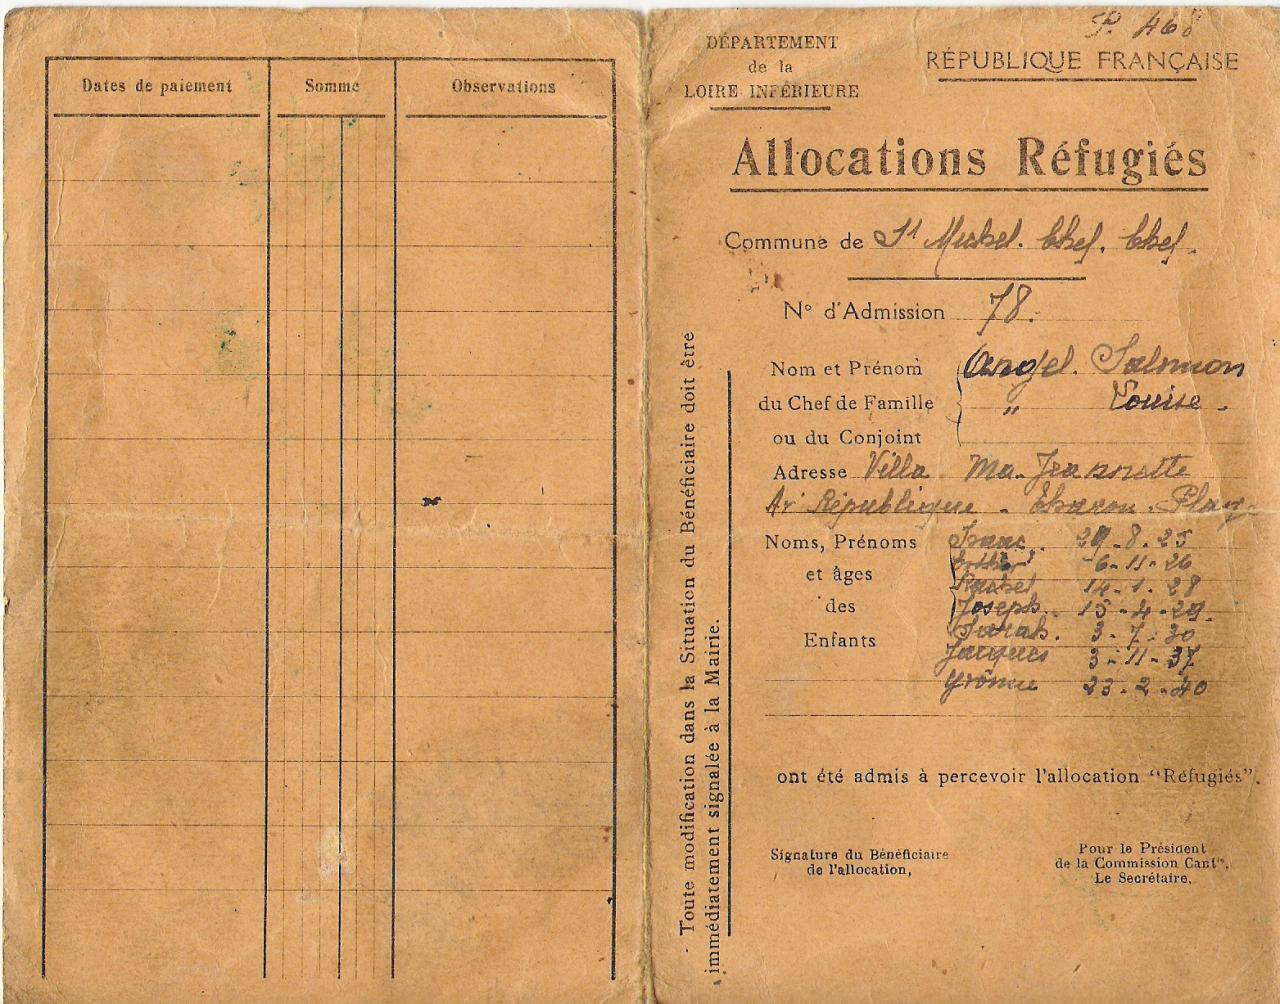 Dates de paiement
Somme
Observations
P. 468
DÉPARTEMENT
de la
LOIRE INFÉRIEURE
RÉPUBLIQUE FRANÇAISE
Allocations Réfugiés
Commune de St Michel. Chef. Chef.
N° d'Admission 78.
Nom et Prénom
du Chef de Famille
ou du Conjoint
Angel. Salomon
" Louise.
Adresse Villa Ma Jeannette
Av République - Tharon. Plage
Noms, Prénoms
et âges
des
Enfants
Isaac. 29. 8. 25
Esther 6. 11. 26
Rachel 14. 1. 28
Joseph. 15. 4. 29.
Sarah. 3. 7. 30
Jacques 3. 11. 37
Yvonne 23. 2. 40
ont été admis à percevoir l'allocation "Réfugiés".
Signature du Bénéficiaire
de l'allocation,
Pour le Président
de la Commission Cantle,
Le Secrétaire,
Toute modification dans la Situation du Bénéficiaire doit être
immédiatement signalée à la Mairie.